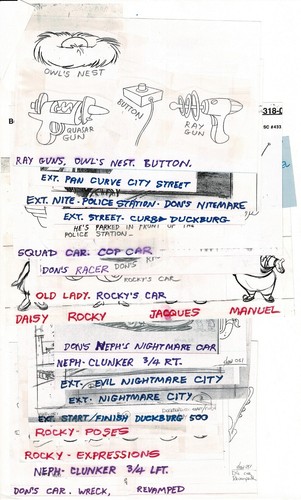 OWL'S NEST
318-0
SC #433
B
BUTTON
QUASAR GUN
RAY GUN
RAY GUNS, OWL'S NEST. BUTTON.
EXT. PAN CURVE CITY STREET
EXT. NITE - POLICE STATION - DON'S NITEMARE
EXT. STREET - CURB DUCKBURG
HE'S PARKED IN FRONT OF THE
POLICE STATION
SQUAD CAR: COP CAR
DON'S RACER
DON'S
ROCKY'S CAR
OLD LADY. ROCKY'S CAR
DAISY ROCKY JACQUES MANUEL
DON'S NEPH'S NIGHTMARE CAR
NEPH- CLUNKER 3/4 RT.
EXT. EVIL NIGHTMARE CITY
EXT. NIGHTMARE CITY
EXT. START/FINISH DUCKBURG 500
ROCKY- POSES
ROCKY- EXPRESSIONS
NEPH- CLUNKER 3/4 LFT.
DON'S CAR. WRECK, REVAMPED